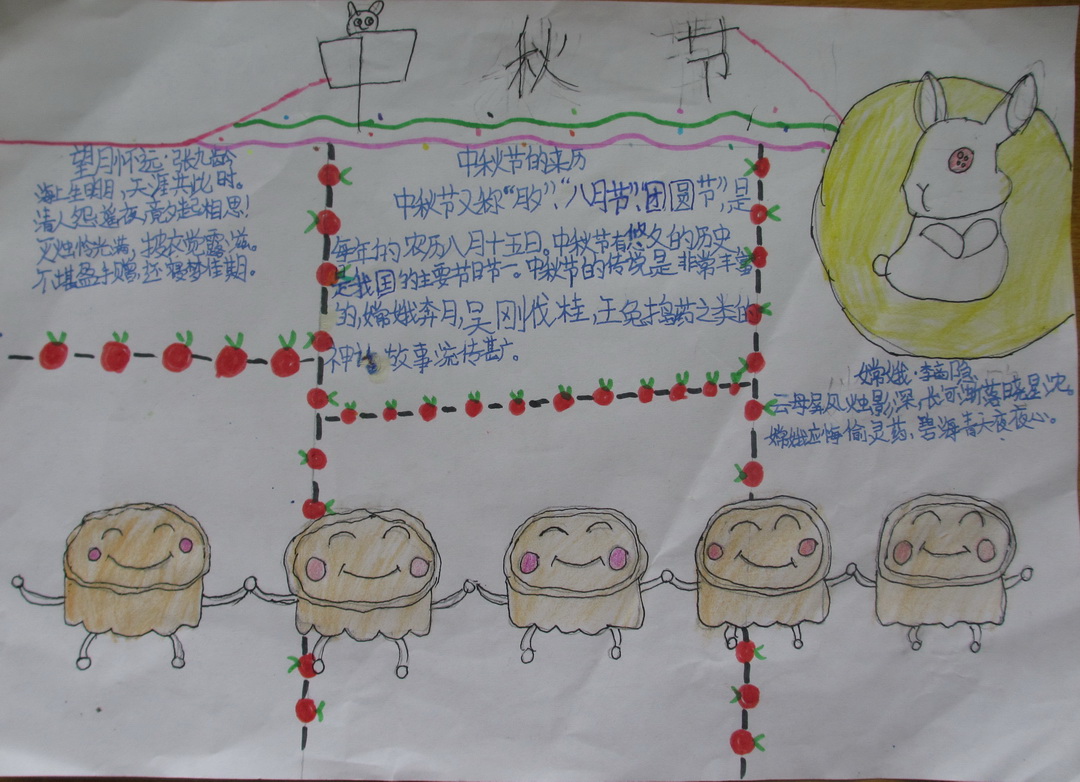 中秋节
望月怀远·张九龄
海上生明月,天涯共此时。
情人怨遥夜,竟夕起相思!
灭烛怜光满,披衣觉露滋。
不堪盈手赠,还寝梦佳期。
中秋节的来历
中秋节又称“月夕”、“八月节”、“团圆节”,是
每年的农历八月十五日。中秋节有悠久的历史
是我国的主要节日节一。中秋节的传说是非常丰富
的,嫦娥奔月,吴刚伐桂,玉兔捣药之类的
神话故事流传甚广。
嫦娥·李商隐
云母屏风烛影深,长河渐落晓星沉。
嫦娥应悔偷灵药,碧海青天夜夜心。